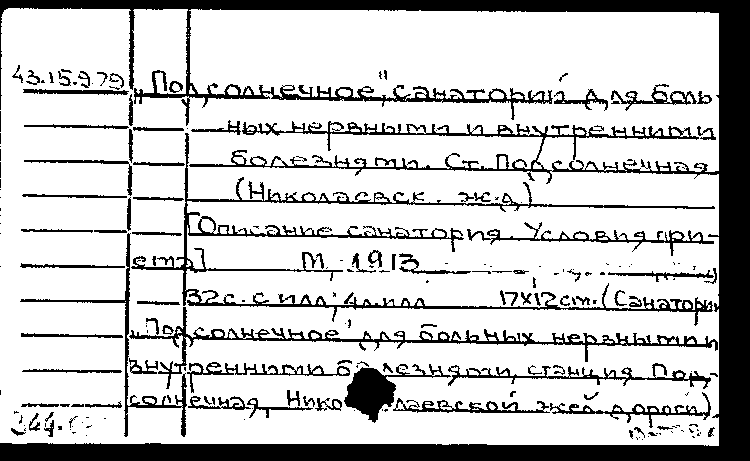 43.15.9.79 „Подсолнечное", санаторий для боль-
ных нервными и внутренними
болезнями. Ст. Подсолнечная
(Николаевск. ж.д)
[Описание санатория. Условия при-
ема] М, 1913
32с. с илл; 4л.илл 17х12см. (Санатори
„Подсолнечное" для больных нервными и
внутренними болезнями, станция Под-
солнечная, Николаевской жел дороги).
344.